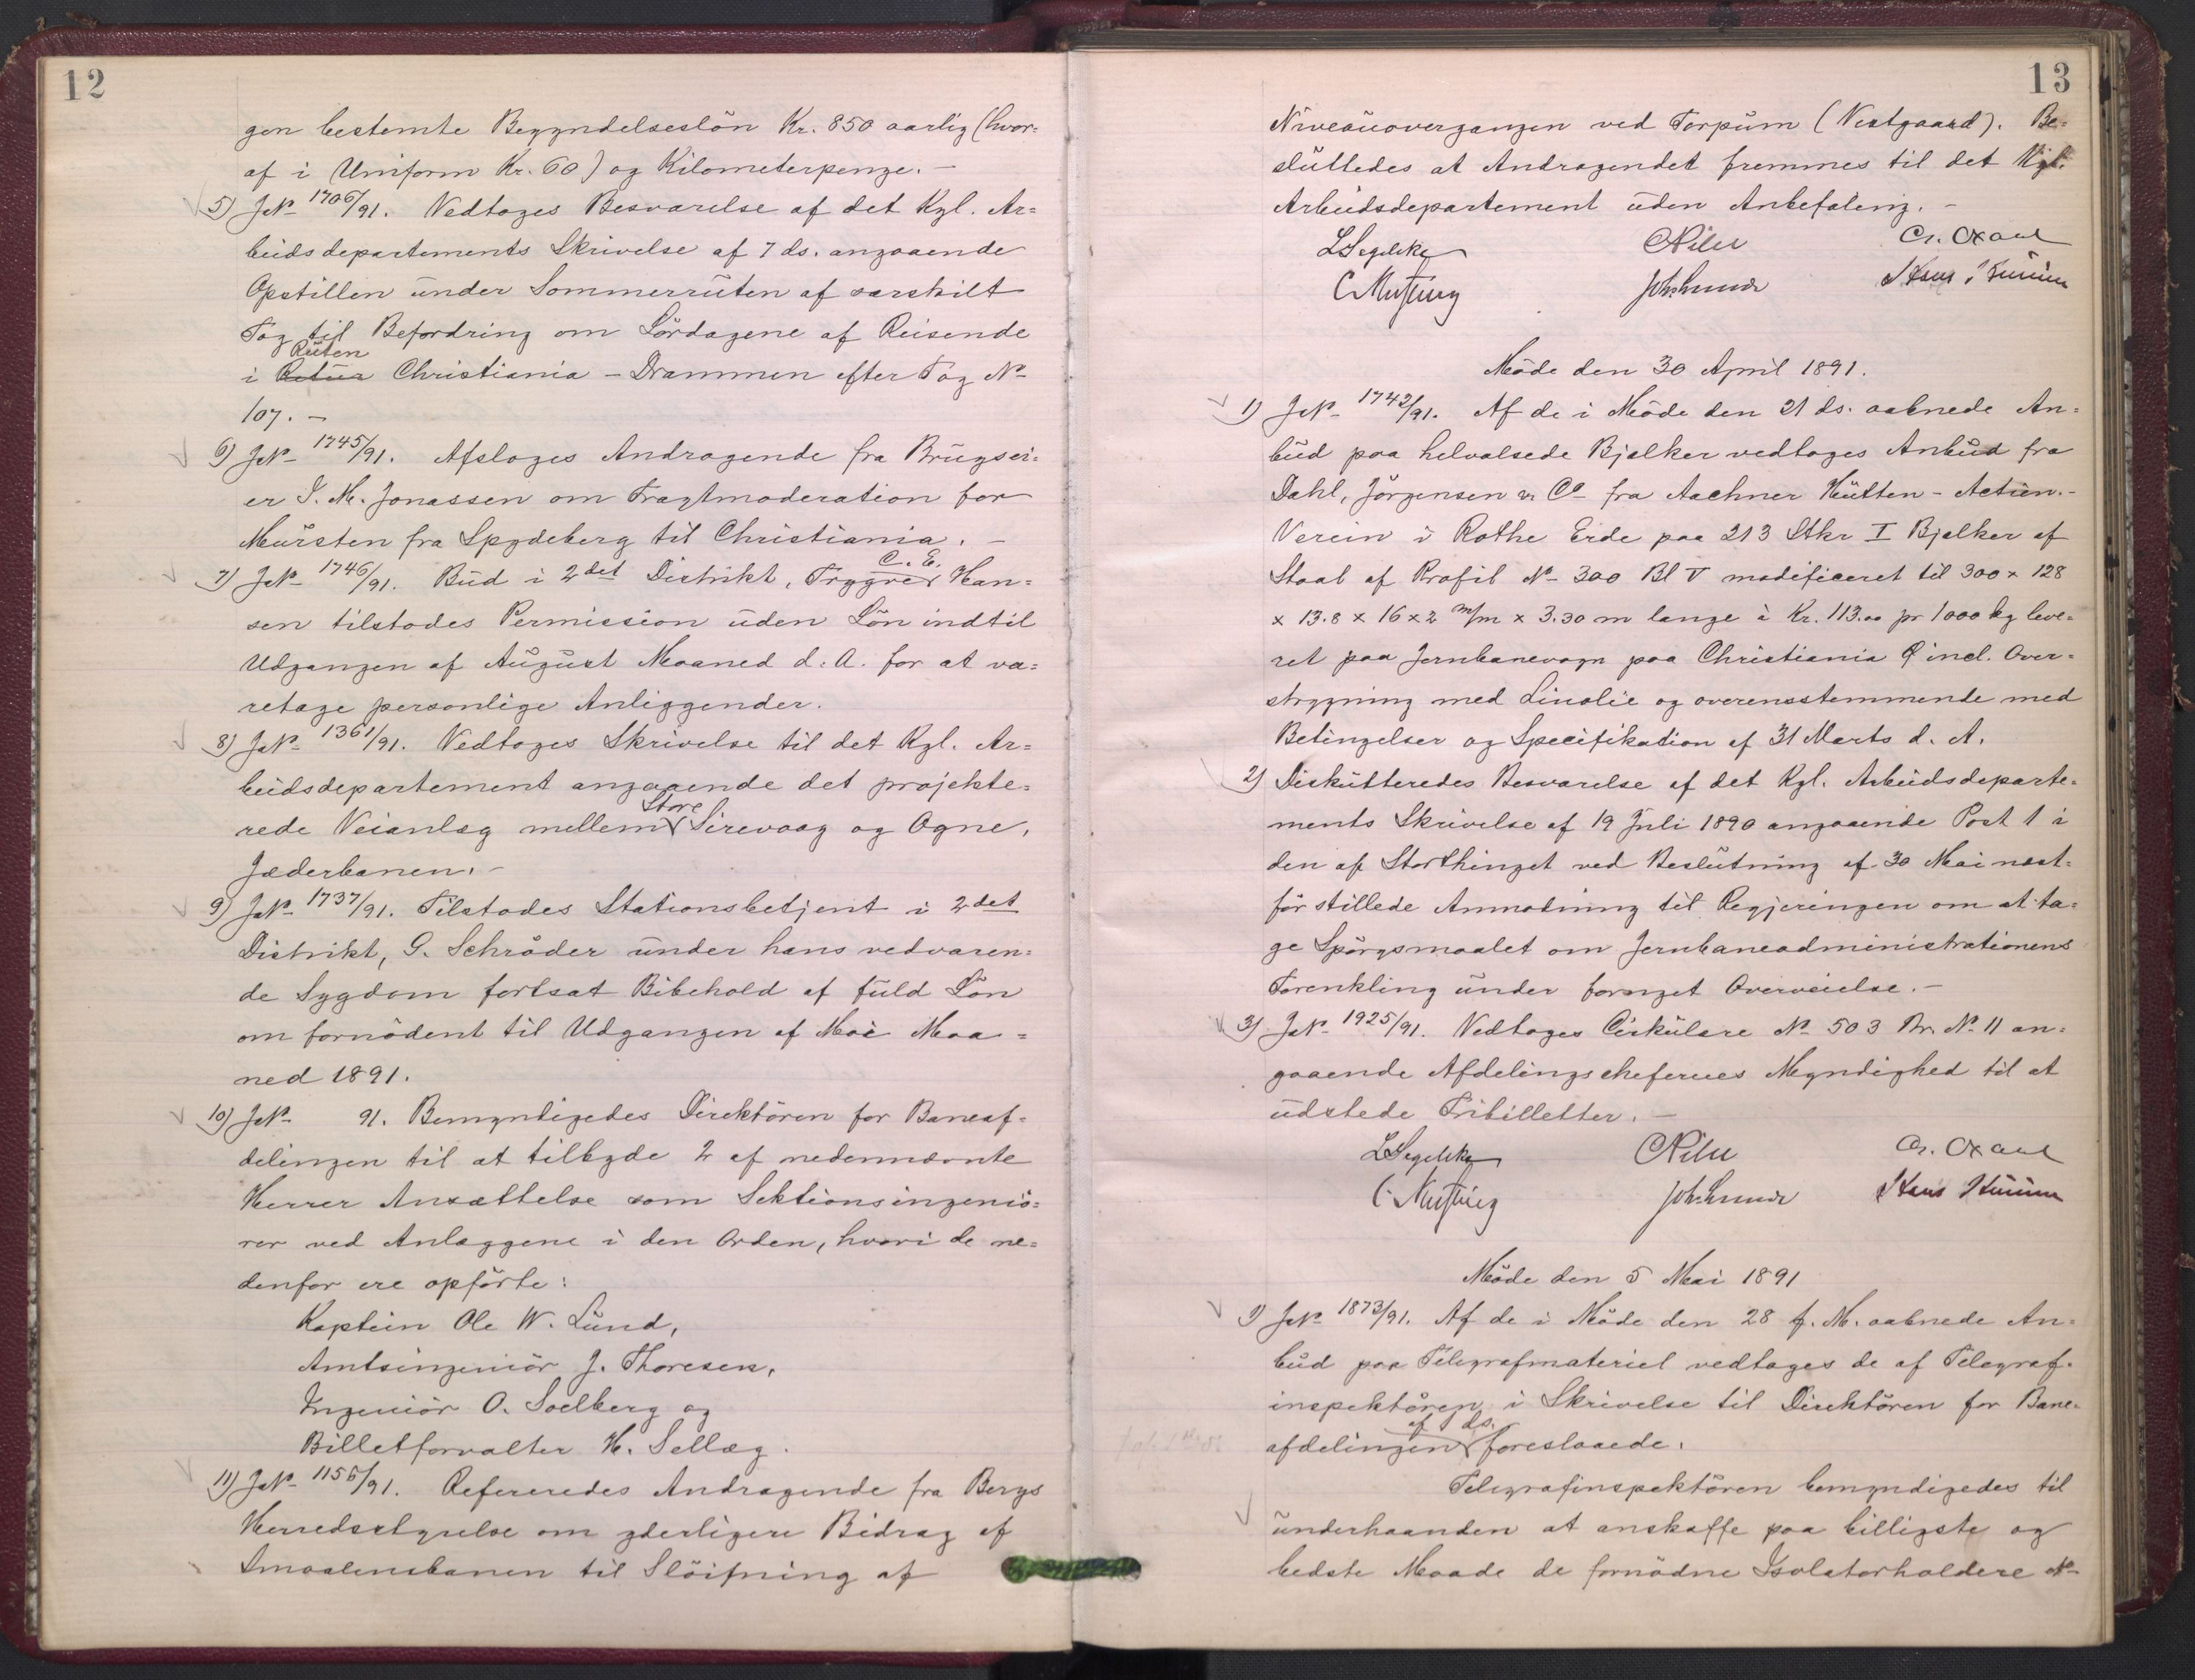 12
gen bestemte Begyndelseslön Kr. 850 aarlig (hvor=
af i Uniform Kr. 60) og Kilometerpenge. -
5) JN⁰ 1706/91. Vedtoges Besvarelse af det Kgl. Ar=
beidsdepartements Skrivelse af 7 ds. angaaende
Opstillen under Sommerruten af særskilt
Tog til Befordring om Lördagene af Reisende
Ruten
i Retur Christiania - Drammen efter Tog N⁰
107. -
6) JN⁰ 1745/91. Afsloges Andragende fra Brugsei=
er J. M. Jonassen om Fragtmoderation for
Mursten fra Spydeberg til Christiania. -
C. E.
7) JN⁰ 1746/91. Bud i 2det Distrikt, Trygve Han=
sen tilstodes Permission uden Lön indtil
Udgangen af August Maaned d. A. for at va=
retage personlige Anliggender.
8) JN⁰ 1361/91. Vedtoges Skrivelse til det Kgl. Ar=
beidsdepartement angaaende det projekte=
Store
rede Veianlæg mellem Sirevaag og Ogne,
Jæderbanen. -
9) JN⁰ 1737/91. Tilstodes Stationsbetjent i 2det
Distrikt, G. Schröder under hans vedvaren=
de Sygdom fortsat Bibehold af fuld Lön
om fornödent til Udgangen af Mai Maa=
ned 1891.
10) JN⁰ 91. Bemyndigedes Direktören for Baneaf=
delingen til at tilbyde 2 af nedennævnte
Herrer Ansættelse som Sektionsingeniö=
rer ved Anlæggene i den Orden, hvori de ne=
denfor ere opförte:
Kaptein Ole W. Lund,
Amtsingeniör J. Thoresen,
Ingeniör O. Soelberg og
Billetforvalter H. Sellæg.
11) JN⁰ 1156/91. Refereredes Andragende fra Bergs
Herredsstyrelse om yderligere Bidrag af
Smaalensbanen til Slöifning af
13
Niveauovergangen ved Torpum (Vestgaard). Be=
sluttedes at Andragendet fremmes til det Kgl.
Arbeidsdepartement uden Anbefaling. -
LSegelcke CPihl
Joh. Lund
Möde den 30 April 1891.
1) JN⁰ 1742/91. Af de i Möde den 21 ds. aabnede An=
bud paa helvalsede Bjelker vedtoges Anbud fra
Dahl, Jörgensen & C⁰ fra Aachner Hütten - Actien. -
Verein i Rothe Erde paa 213 Stkr I Bjelker af
Staal af Profil N⁰ 300 Bl V modificeret til 300 × 128
× 13.8 × 16 × 2 m/m × 3.30 m lange à Kr. 113.00 pr 1000 kg leve=
ret paa Jernbanevogn paa Christiania Ö incl. Over=
strygning med Linolie og overensstemmende med
Betingelser og Specifikation af 31 Marts d. A.
2) Diskutteredes Besvarelse af det Kgl. Arbeidsdeparte=
ments Skrivelse af 19 Juli 1890 angaaende Post 1 i
den af Storthinget ved Beslutning af 30 Mai næst=
för stillede Anmodning til Regjeringen om at ta=
ge Spörgsmaalet om Jernbaneadministrationens
Forenkling under fornyet Overveielse. -
3) JN⁰ 1925/91. Vedtoges Cirkulære N⁰ 503 Tr. N⁰ 11 an=
gaaende Afdelingschefernes Myndighed til at
udstede Fribilletter. -
LSegelcke CPihl
Joh. Lund
Möde den 5 Mai 1891
1) JN⁰ 1873/91. Af de i Möde den 28 f. M. aabnede An=
bud paa Telegrafmateriel vedtoges de af Telegraf=
inspektören i Skrivelse til Direktören for Bane=
af 1 ds.
afdelingen foreslaaede.
Telegrafinspektören bemyndigedes til
underhaanden at anskaffe paa billigste og
bedste Maade de fornödne Isolatorholdere N⁰